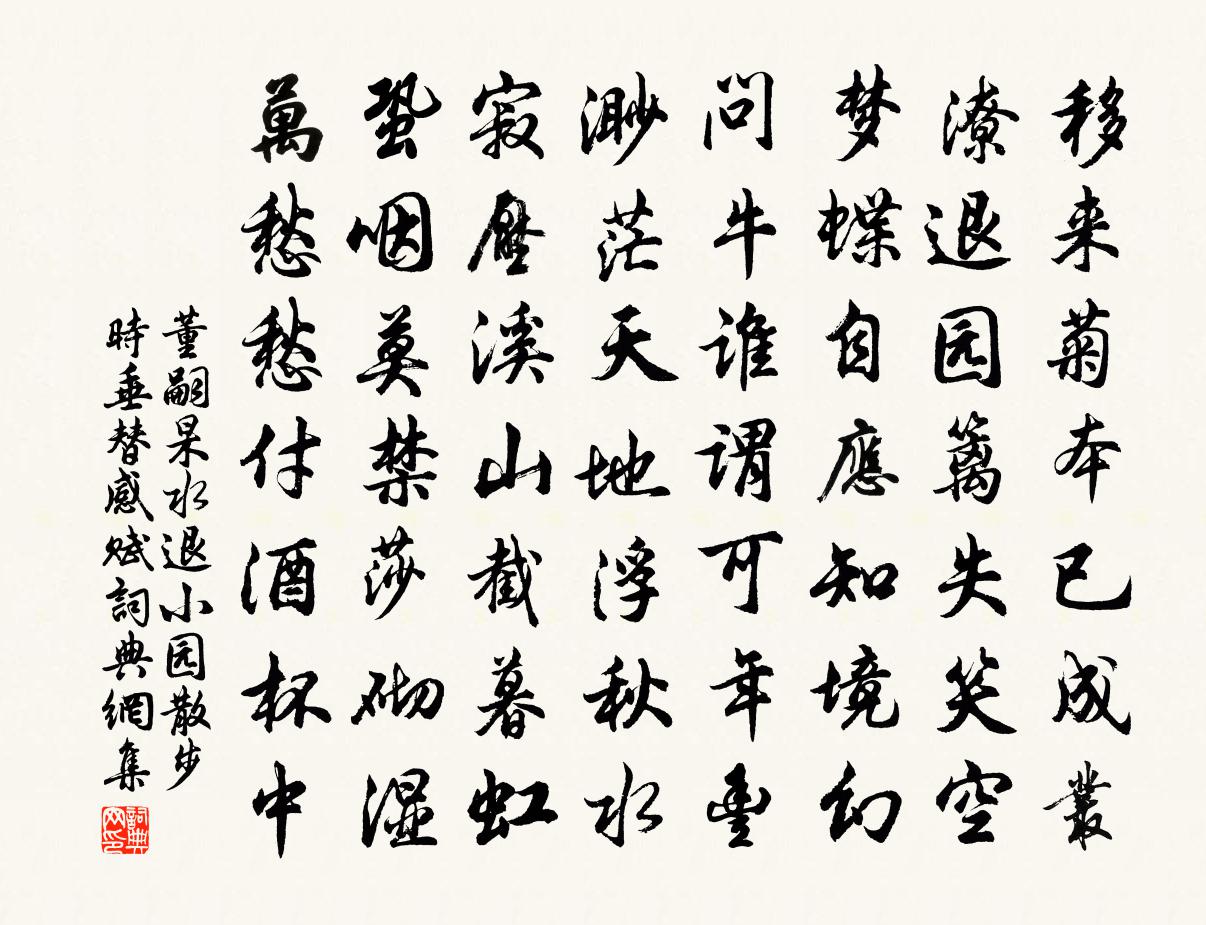 移来菊本已成叢
潦退园籬失笑空
梦蝶自應知境幻
問牛誰謂可年豊
渺茫天地浮秋水
寂歷溪山截暮虹
蛩咽莫禁莎砌湿
萬愁愁付酒杯中
董嗣杲水退小园散步
時垂替感赋詞典網集
詞典网印